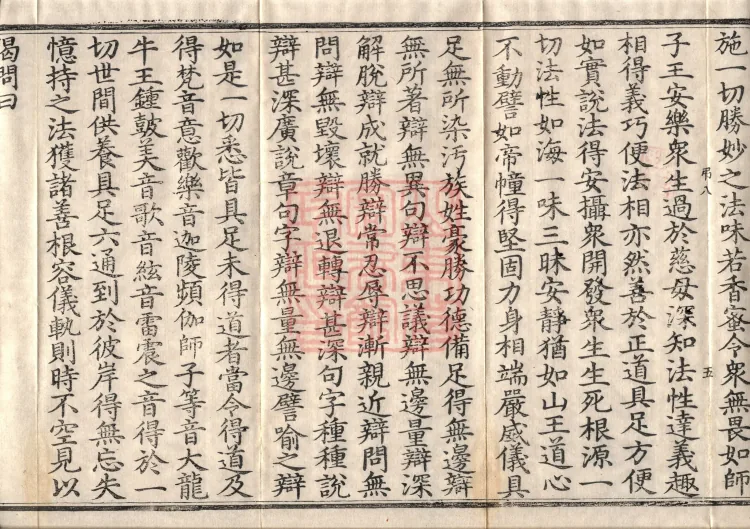 施一切勝妙之法味若香蜜令衆無畏如師
帛八
五
子王安樂衆生過於慈母深知法性達義趣
相得義巧便法相亦然善於正道具足方便
如實説法得安攝衆開發衆生生死根源一
切法性如海一味三昧安靜猶如山王道心
不動譬如帝幢得堅固力身相端嚴威儀具
足無所染汚族姓豪勝功德備足得無邊辯
無所著辯無異句辯不思議辯無邊量辯深
解脫辯成就勝辯常忍辱辯漸親近辯問無
問辯無毀壞辯無退轉辯甚深句字種種說
辯甚深廣說章句字辯無量無邊譬喻之辯
如是一切悉皆具足未得道者當令得道及
得梵音意歡樂音迦陵頻伽師子等音大龍
牛王鍾皷美音歌音絃音雷震之音得於一
切世間供養具足六通到於彼岸得無忘失
憶持之法獲諸善根容儀軌則時不空見以
偈問曰